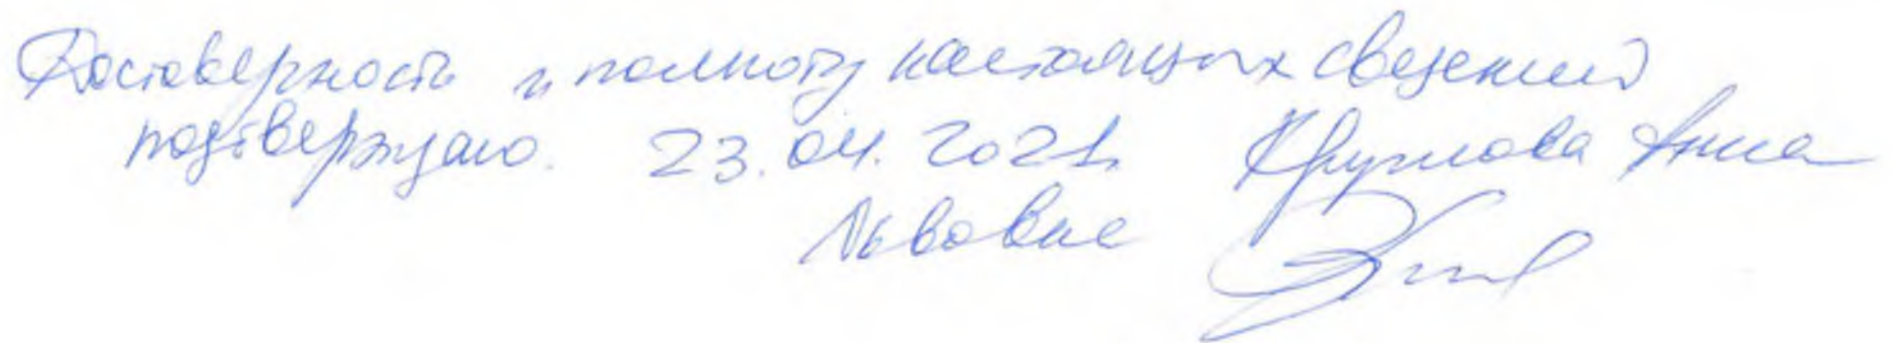 Достоверность и полноту настоящих сведений
подтверждаю. 23.04.2021. Круглова Анна
Львовна